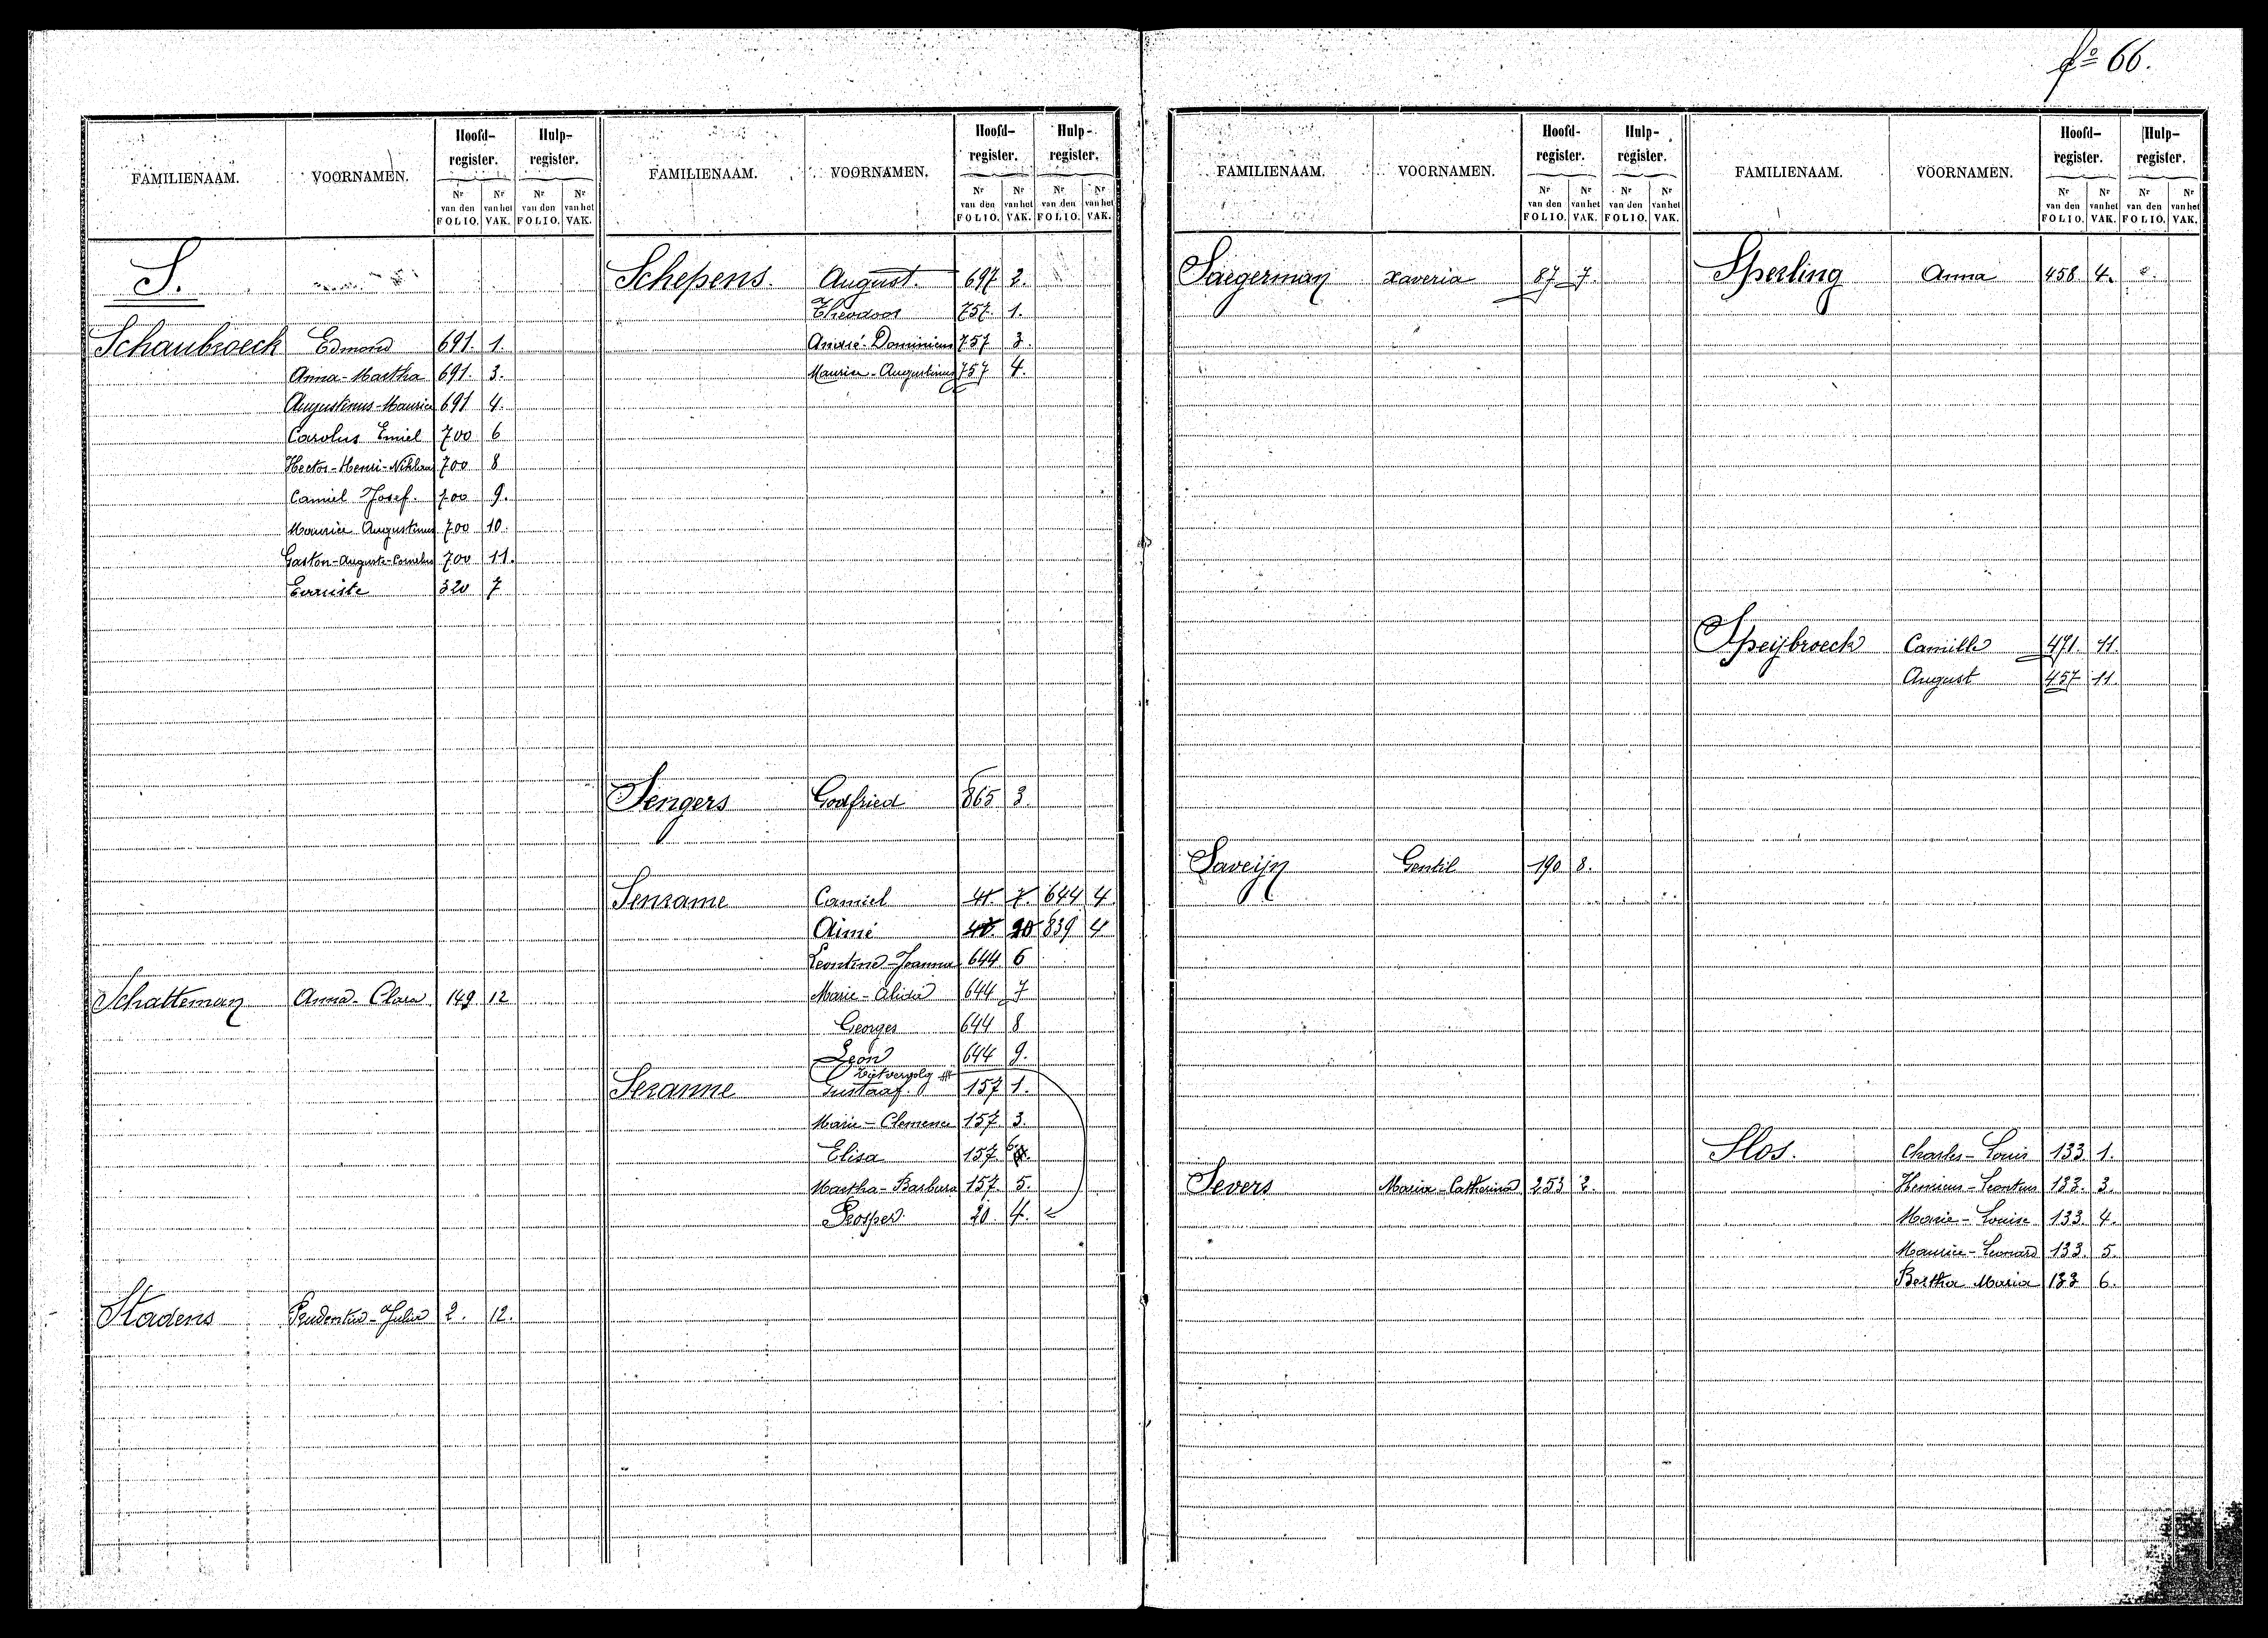 fo 66.
FAMILIENAAM. VOORNAMEN. Hoofd-register. Hulp-register.
Nr van den FOLIO. Nr van het VAK. Nr van den FOLIO. Nr van het VAK.
S.
Schaubroeck Edmond 691. 1.
Anna-Martha 691. 3.
Augustinus-Maurice 691 4.
Carolus Emiel 700 6
Hector-Henri- 700 8
Camiel Josef. 700 9.
Maurice Augustinus 700 10.
Gaston-Auguste-Cornelius 700 11.
320 7
Schatteman Anna-Clara 149 12
Stadens Prudentia-Julia 2. 12.
FAMILIENAAM. VOORNAMEN. Hoofd-register. Hulp-register.
Nr van den FOLIO. Nr van het VAK. Nr van den FOLIO. Nr van het VAK.
Schepens. August. 697 2.
Theodoor 757. 1.
André-Dominicus 757 3.
Maurice-Augustinus 757 4.
Sengers Godfried 865 3.
Senrame Camiel 41. 7. 644 4
Aimé 20 839 4
Leontine-Joanna 644 6
Marie-Alida 644 7
Georges 644 8
Leon 644 9.
Seranne Gustaaf. 157 1.
Marie-Clemence 157. 3.
Elisa 157. 6.
Martha-Barbara 157. 5.
Prosper 20. 4.
FAMILIENAAM. VOORNAMEN. Hoofd-register. Hulp-register.
Nr van den FOLIO. Nr van het VAK. Nr van den FOLIO. Nr van het VAK.
Saegerman Xaveria 87 7.
Saveijn Gentil 190 8.
Severs Maria-Catherina 253 2.
FAMILIENAAM. VOORNAMEN. Hoofd-register. Hulp-register.
Nr van den FOLIO. Nr van het VAK. Nr van den FOLIO. Nr van het VAK.
Sperling Anna 458. 4.
Speijbroeck Camille 471. 11.
August 457 11.
Slos. Charles-Louis 133 1.
Henricus-Leontius 133. 3.
Marie-Louise 133. 4.
Maurice-Leonard 133. 5.
Bertha Maria 133 6.